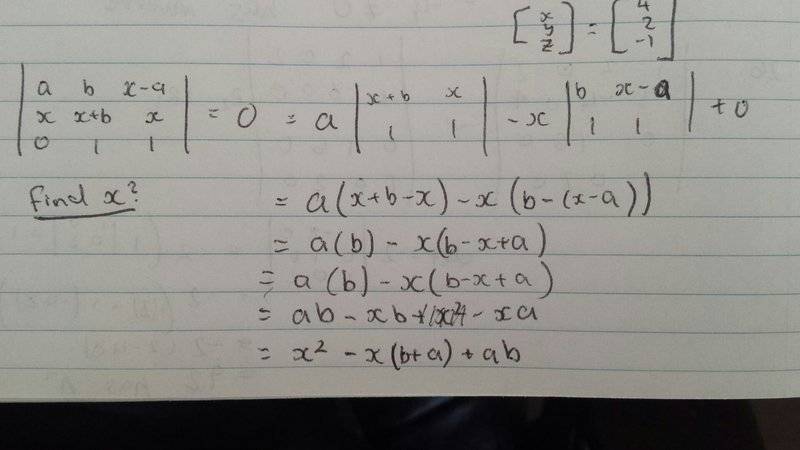 [x y z] = [4 2 -1]
|a b x-a| |x+b x| |b x-a|
|x x+b x| = 0 = a | | - x | | + 0
|0 1 1| |1 1| |1 1|
find x? = a(x+b-x) - x(b-(x-a))
= a(b) - x(b-x+a)
= a(b) - x(b-x+a)
= ab - xb + x² - xa
= x² - x(b+a) + ab